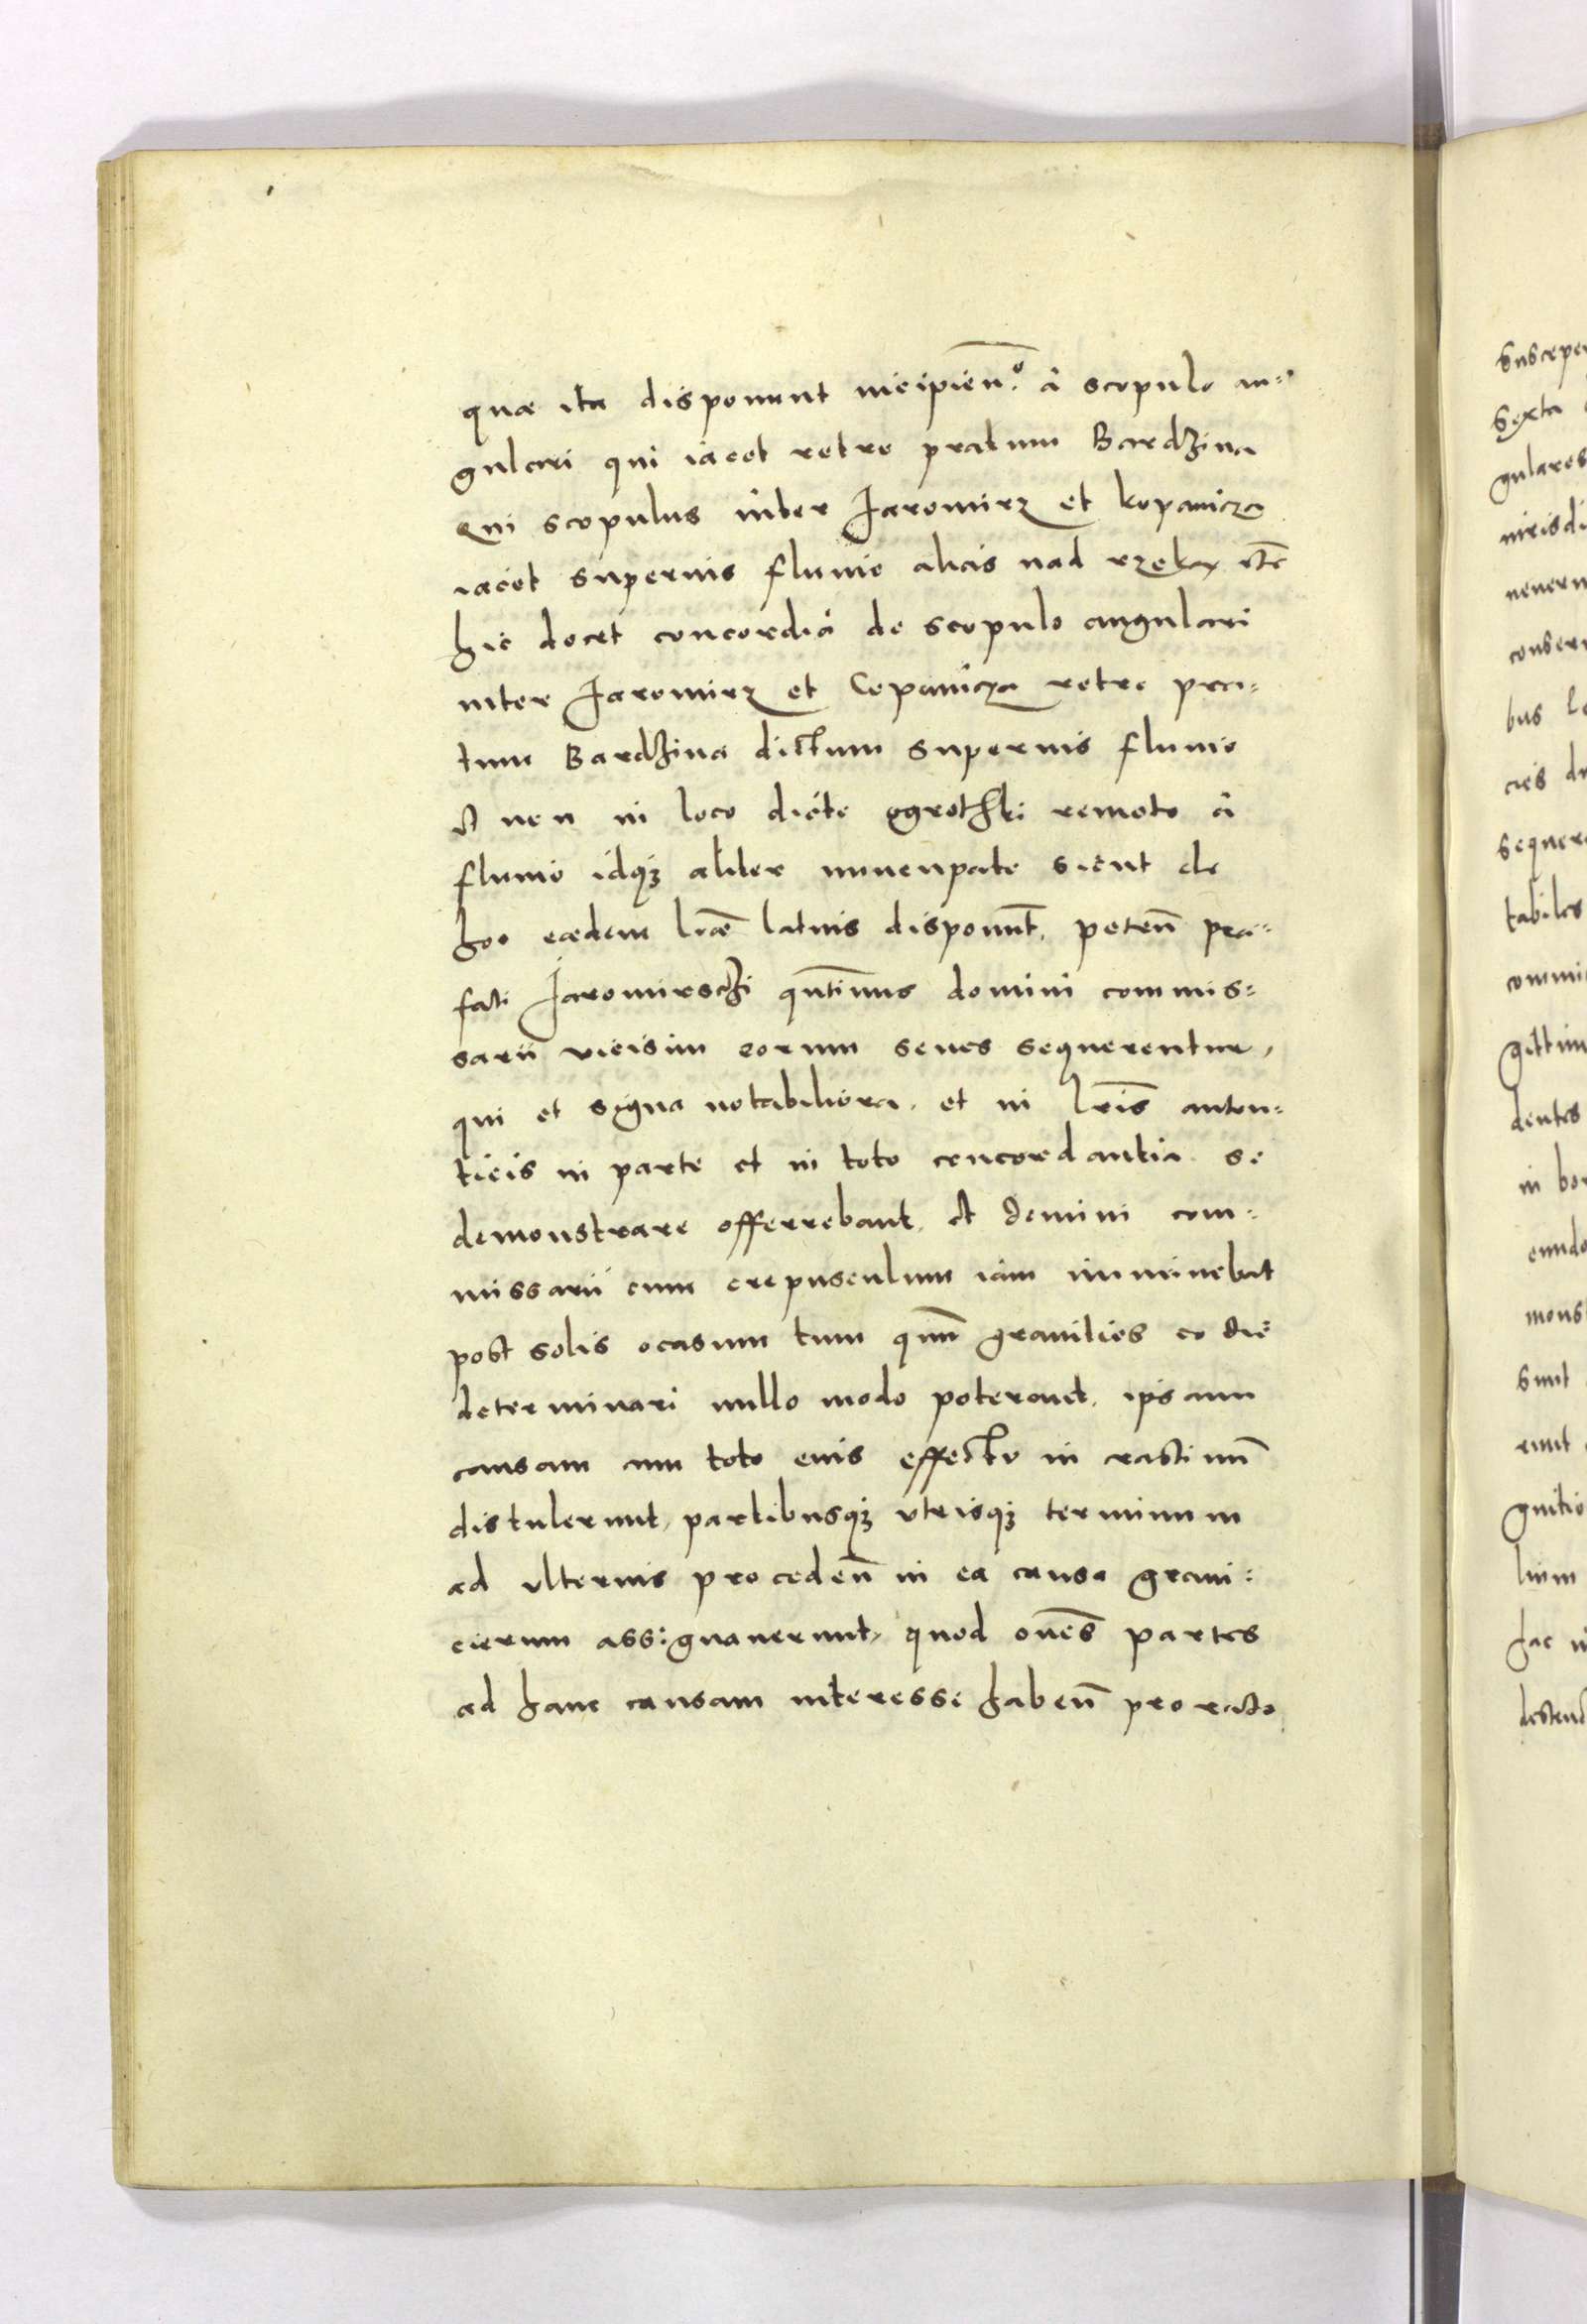 quæ ita disponunt incipien̄º: â scopulo an=
gulari qui iacet retro pratum Bardzina
Qui scopulus inter Jaromirz et kopanicza
iacet superius fluuio alias nad rzeką etc
hic docet concordiâ de scopulo angulari
inter Jaromirz et Copanicza retro pra=
tum Bardzina dictum superius fluuio
et non in loco dicto ogrothki remoto â
fluuio idqꝫ aliter nuncupato sicut de
hoc eædem lr̄æ latius disponunt, peten̄ præ=
fati Jaromirschi qn̄tinus domini commis=
sarii vicisim eorum senes sequerentur,
qui et signa notabiliora, et in lr̄is auten=
ticis in parte et in toto concordantia se
demonstrare offerrebant, et domini com=
missarii cum crepusculum iam imminebat
post solis ocasum tum qm̄ granities eo die
determinari nullo modo poterant, ipsam
causam cum toto eius effectu in crastinū
distulerunt, partibusqꝫ vtrisqꝫ terminum
ad vlterius proceden̄ in ea causa grani=
cierum assignauerunt, quod om̄es partes
ad hanc causam interesse haben̄ pro rato
susceper
sexta
gulares
iurisdi
nenerun
conser
bus le
cies du
seque
tabiles
commi
gittim
dentes
in bo
eundo
mons
sunt
runt
gnitio
lium
hac